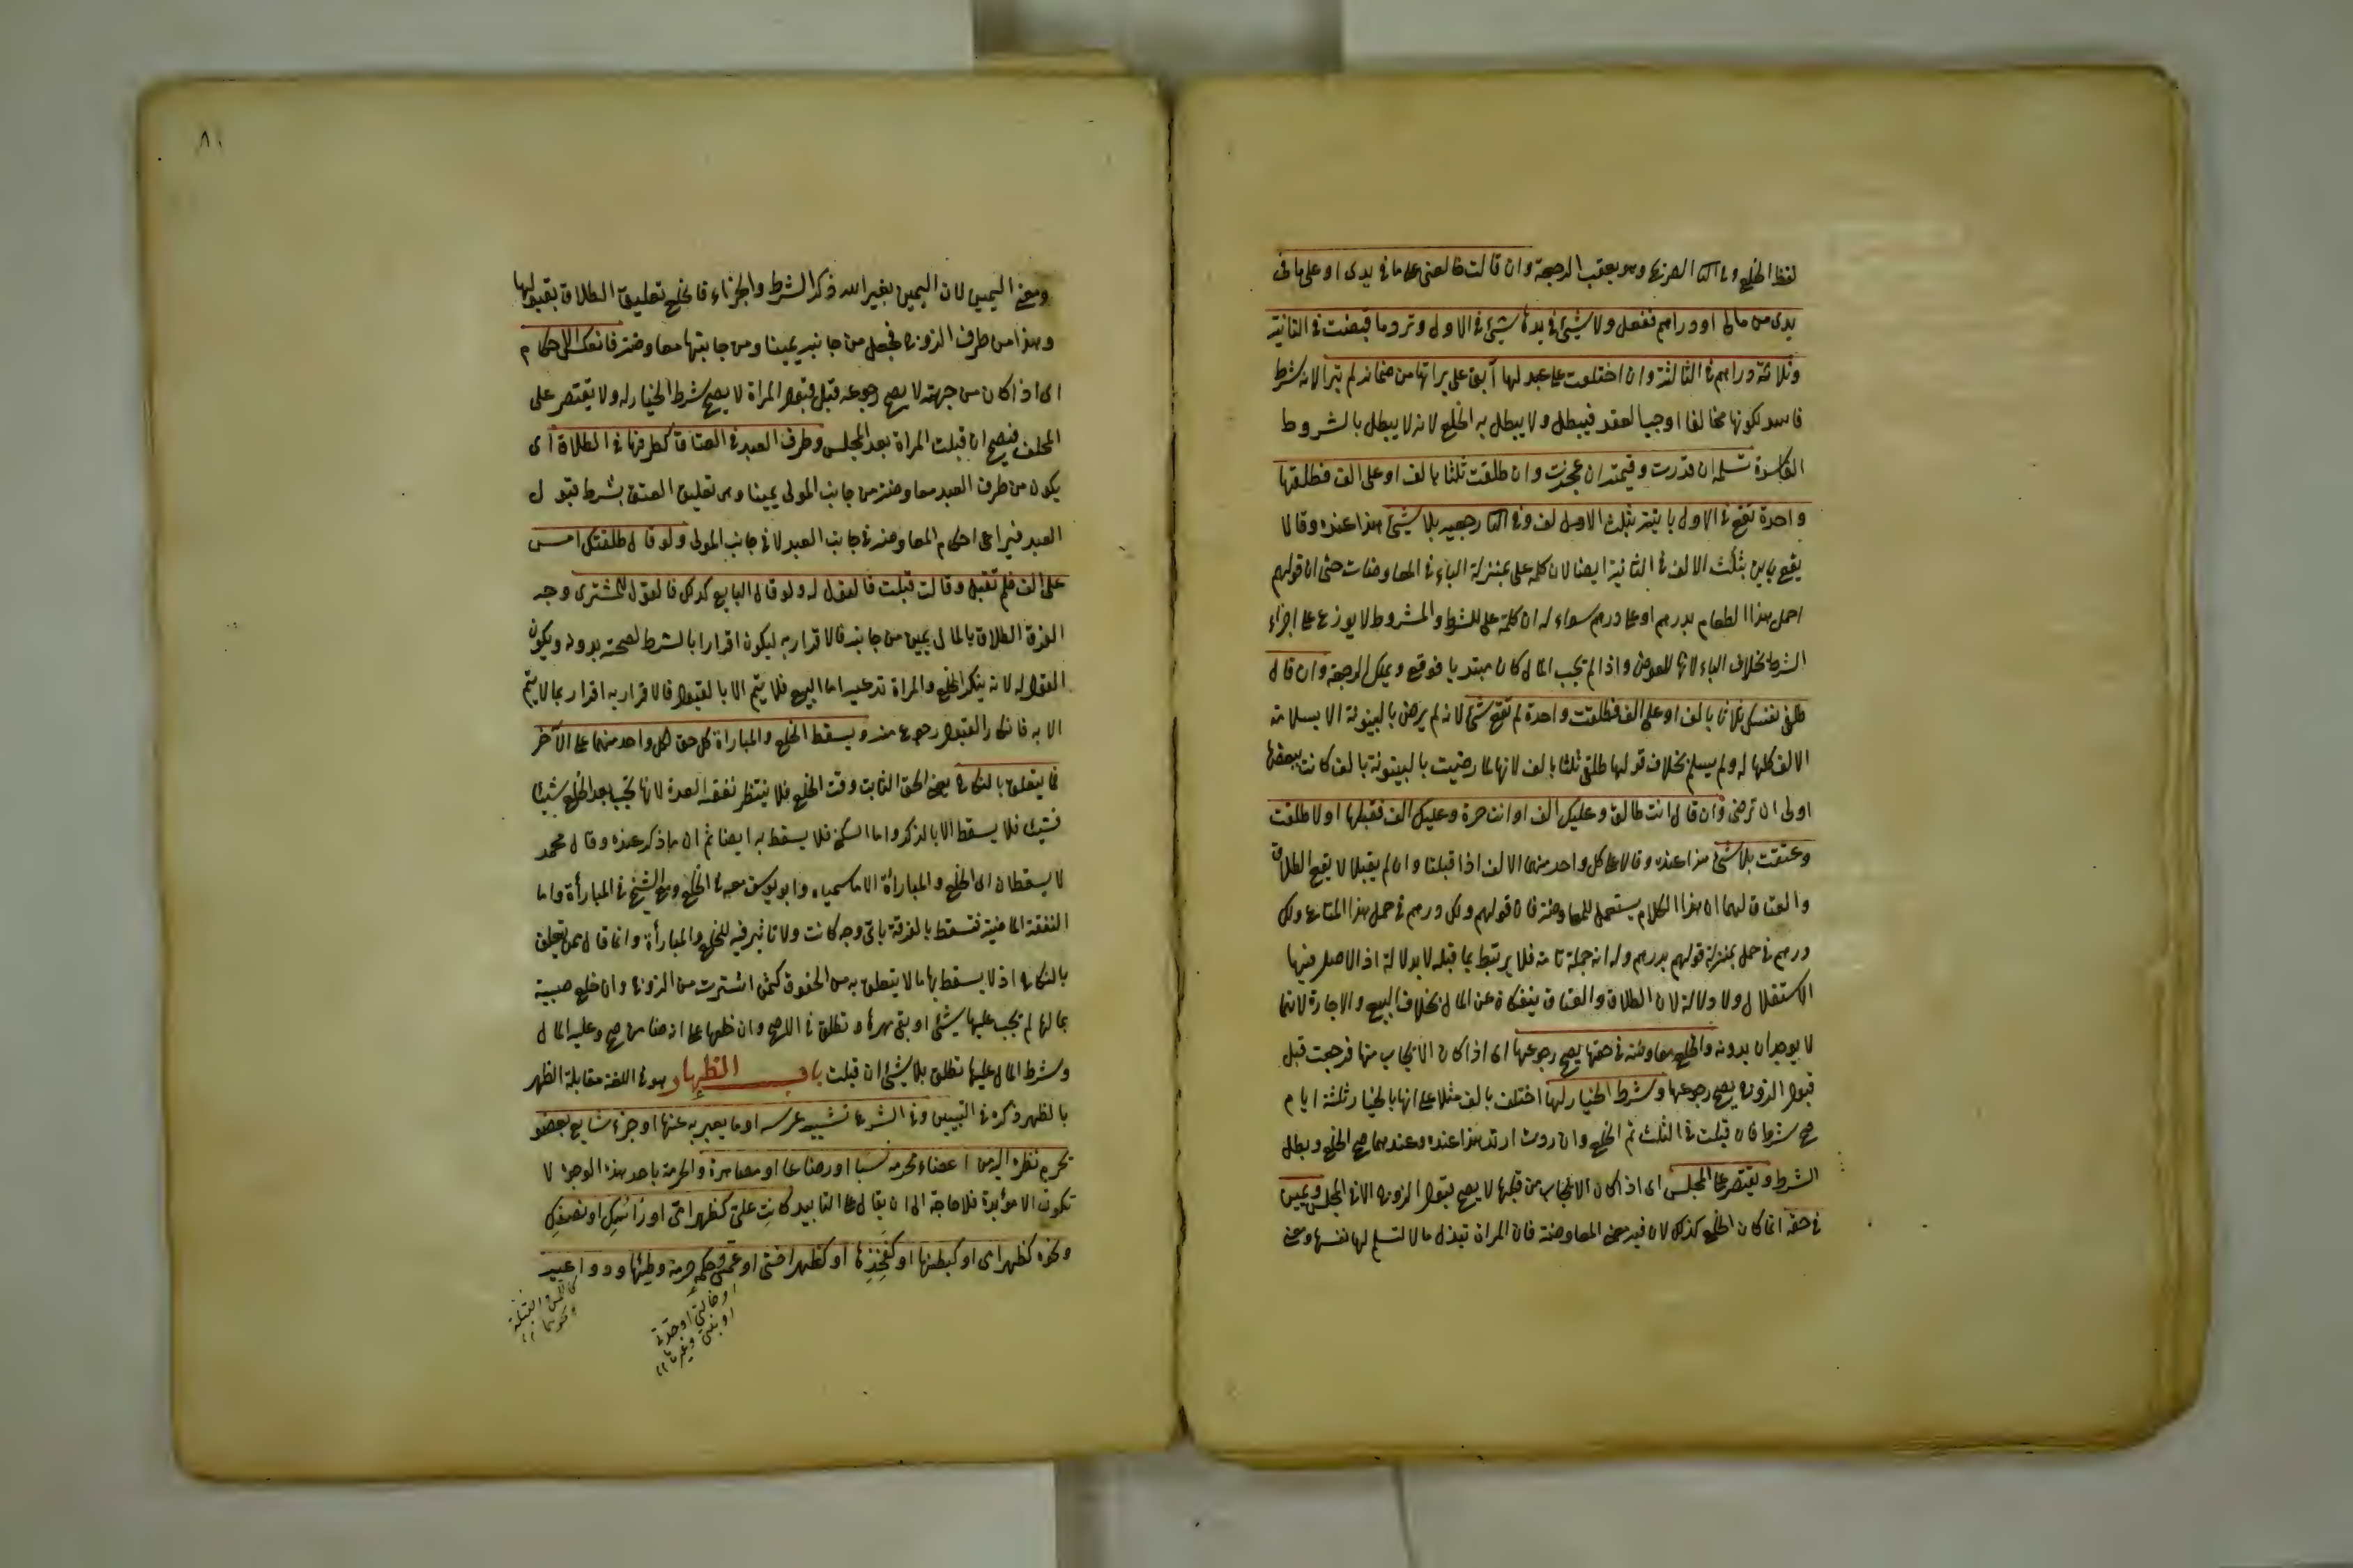 لفظ الخلع وفي الثا الصريح وهو يعقب الرجعة وان قالت خالعنى على ما في يدى او على ما في
يدى من مالى او دراهم ففعل ولا شئ في يدها لا شئ في الاول وترد ما قبضت في الثانية
وثلاثة دراهم في الثالثة وان اختلعت على عبد لها آبق على براتها من ضمانه لم تبرا لانه شرط
فاسد لكونها مخالفا لموجب العقد فيبطل ولا يبطل به الخلع لانه لا يبطل بالشروط
الفاسدة تسلمه ان قدرت وقيمته ان عجزت وان طلقت ثلثا بالف او على الف فطلقها
واحدة تقع في الاول باينة بثلث الالف وفي الثا رجعية بلا شئ هذا عنده وقالا
يقع باين بثلث الالف في الثانية ايضا لان كلمة على بمنزلة الباء في المعاوضات حتى ان قولهم
احمل هذا الطعام بدرهم او على درهم سواء له ان كلمة على للشرط والمشروط لا يوزع على اجزاء
الشرط بخلاف الباء لانها للعوض واذا لم يجب المال كان مبتديا فوقع ويملك الرجعة وان قال
طلقى نفسك ثلاثا بالف او على الف فطلقت واحدة لم تقع شئ لانه لم يرض بالبينونة الا بسلامة
الالف كلها له ولم يسلم بخلاف قولها طلقنى ثلثا بالف لانها لما رضيت بالبينونة بالف كانت ببعضها
اولى ان ترضى وان قال انت طالق وعليك الف او انت حرة وعليك الف فقبلتا او لا طلقت
وعتقت بلا شئ هذا عنده وقالا على كل واحد منهما الالف اذا قبلتا وان لم يقبلا لا يقع الطلاق
والعتاق لهما ان هذا الكلام يستعمل للمعاوضة فان قولهم ولك درهم في حمل هذا المتاع ولك
درهم في حمل بمنزلة قولهم بدرهم وله انه جملة تامة فلا يرتبط بما قبله لا بدلالة اذ الاصل فيها
الاستقلال ولا دلالة لان الطلاق والعتاق ينفكان عن المال بخلاف البيع والاجارة لانهما
لا يوجدان بدونه والخلع معاوضة في حقها يصح رجوعها اى اذا كان الايجاب منها فرجعت قبل
قبول الزوج يصح رجوعها وشرط الخيار لها اختلعت بالف مثلا على انها بالخيار ثلثة ايام
صح شرط فان قبلت في الثلث تم الخلع وان ردت ارتد هذا عنده وعندهما صح الخلع وبطل
الشرط ويقتصر على المجلس اى اذا كان الايجاب من قبلها لا يصح قبول الزوج الا في المجلس ويمين
في حقه انما كان الخلع كذلك لان فيه معنى المعاوضة فان المراة تبذل مالا لتسلم لها نفسها ومعنى
٨١
ومعنى اليمين لان اليمين بغير الله ذكر الشرط والجزاء فالخلع تعليق الطلاق بقبولها
وهذا من طرف الزوج فجعل من جانبه يمينا ومن جانبها معاوضة فانعكس الاحكام
اى اذا كان من جهته لا يصح رجوعه قبل قبول المراة لا يصح شرط الخيار له ولا يقتصر على
المجلس فيصح ان قبلت المراة بعد المجلس وطرف العبد في العتاق كطرفها في الطلاق اى
يكون من طرف العبد معاوضة من جانب المولى يمينا وهى تعليق العتق بشرط قبول
العبد فيراعى احكام المعاوضة في جانب العبد لا في جانب المولى ولو قال طلقتك امس
على الف فلم تقبل وقالت قبلت فالقول له ولو قال البايع كذلك فالقول للمشترى وجه
الفرق الطلاق بالمال يمين من جانبه فالاقرار به ليكون اقرارا بالشرط لصحته بدونه ويكون
القول له لانه ينكر الخلع والمراة تدعيه اما البيع فلا يتم الا بالقبول فالاقرار به اقرار بما لا يتم
الا به فانكار القبول رجوع منه ويسقط الخلع والمباراة كل حق لكل واحد منهما على الآخر
مما يتعلق بالنكاح يعنى الحق الثابت وقت الخلع فلا ينتظر نفقة العدة لانها تجب بعد الخلع شيئا
فشيئا فلا يسقط الا بالذكر واما السكنى فلا يسقط به ايضا ثم ان ما ذكر عنده وقال محمد
لا يسقطان اى الخلع والمبارأة الا ما سمياه وابو يوسف معه في الخلع ومع الشيخ في المبارأة واما
النفقة الماضية فتسقط بالفرقة باى وجه كانت ولا تاثير فيه للخلع والمبارأة وانما قال مما يتعلق
بالنكاح اذ لا يسقط بها ما لا يتعلق به من الحقوق كثمن اشترت من الزوج وان خلع صبيته
بمالها لم يجب عليها شئ او بقى مهرها وتطلق في الاصح وان خلعها على انه ضامن صح وعليه المال
وشرط المال عليها تطلق بلا شئ ان قبلت باب الظهار وهو في اللغة مقابلة الظهر
بالظهر ذكره في التبيين وفي الشرع تشبيه عرسه او ما يعبر به عنها او جزء شايع بعضو
يحرم نظره اليه من اعضاء محرمه نسبا او رضاعا او مصاهرة والحرمة باحد هذه الوجوه لا
تكون الا مؤبدة فلا حاجة الى ان يقال على التابيد كانت على كظهر امى او رأسك او نصفك
ونحوه كظهر امى او كبطنها او كفخذها او كظهر اختى او عمتى وحكمه حرمة وطئها ودواعيه
كاللمس والقبلة
ونحوهما
او خالتى او جدتى
او بنتى وغيرها